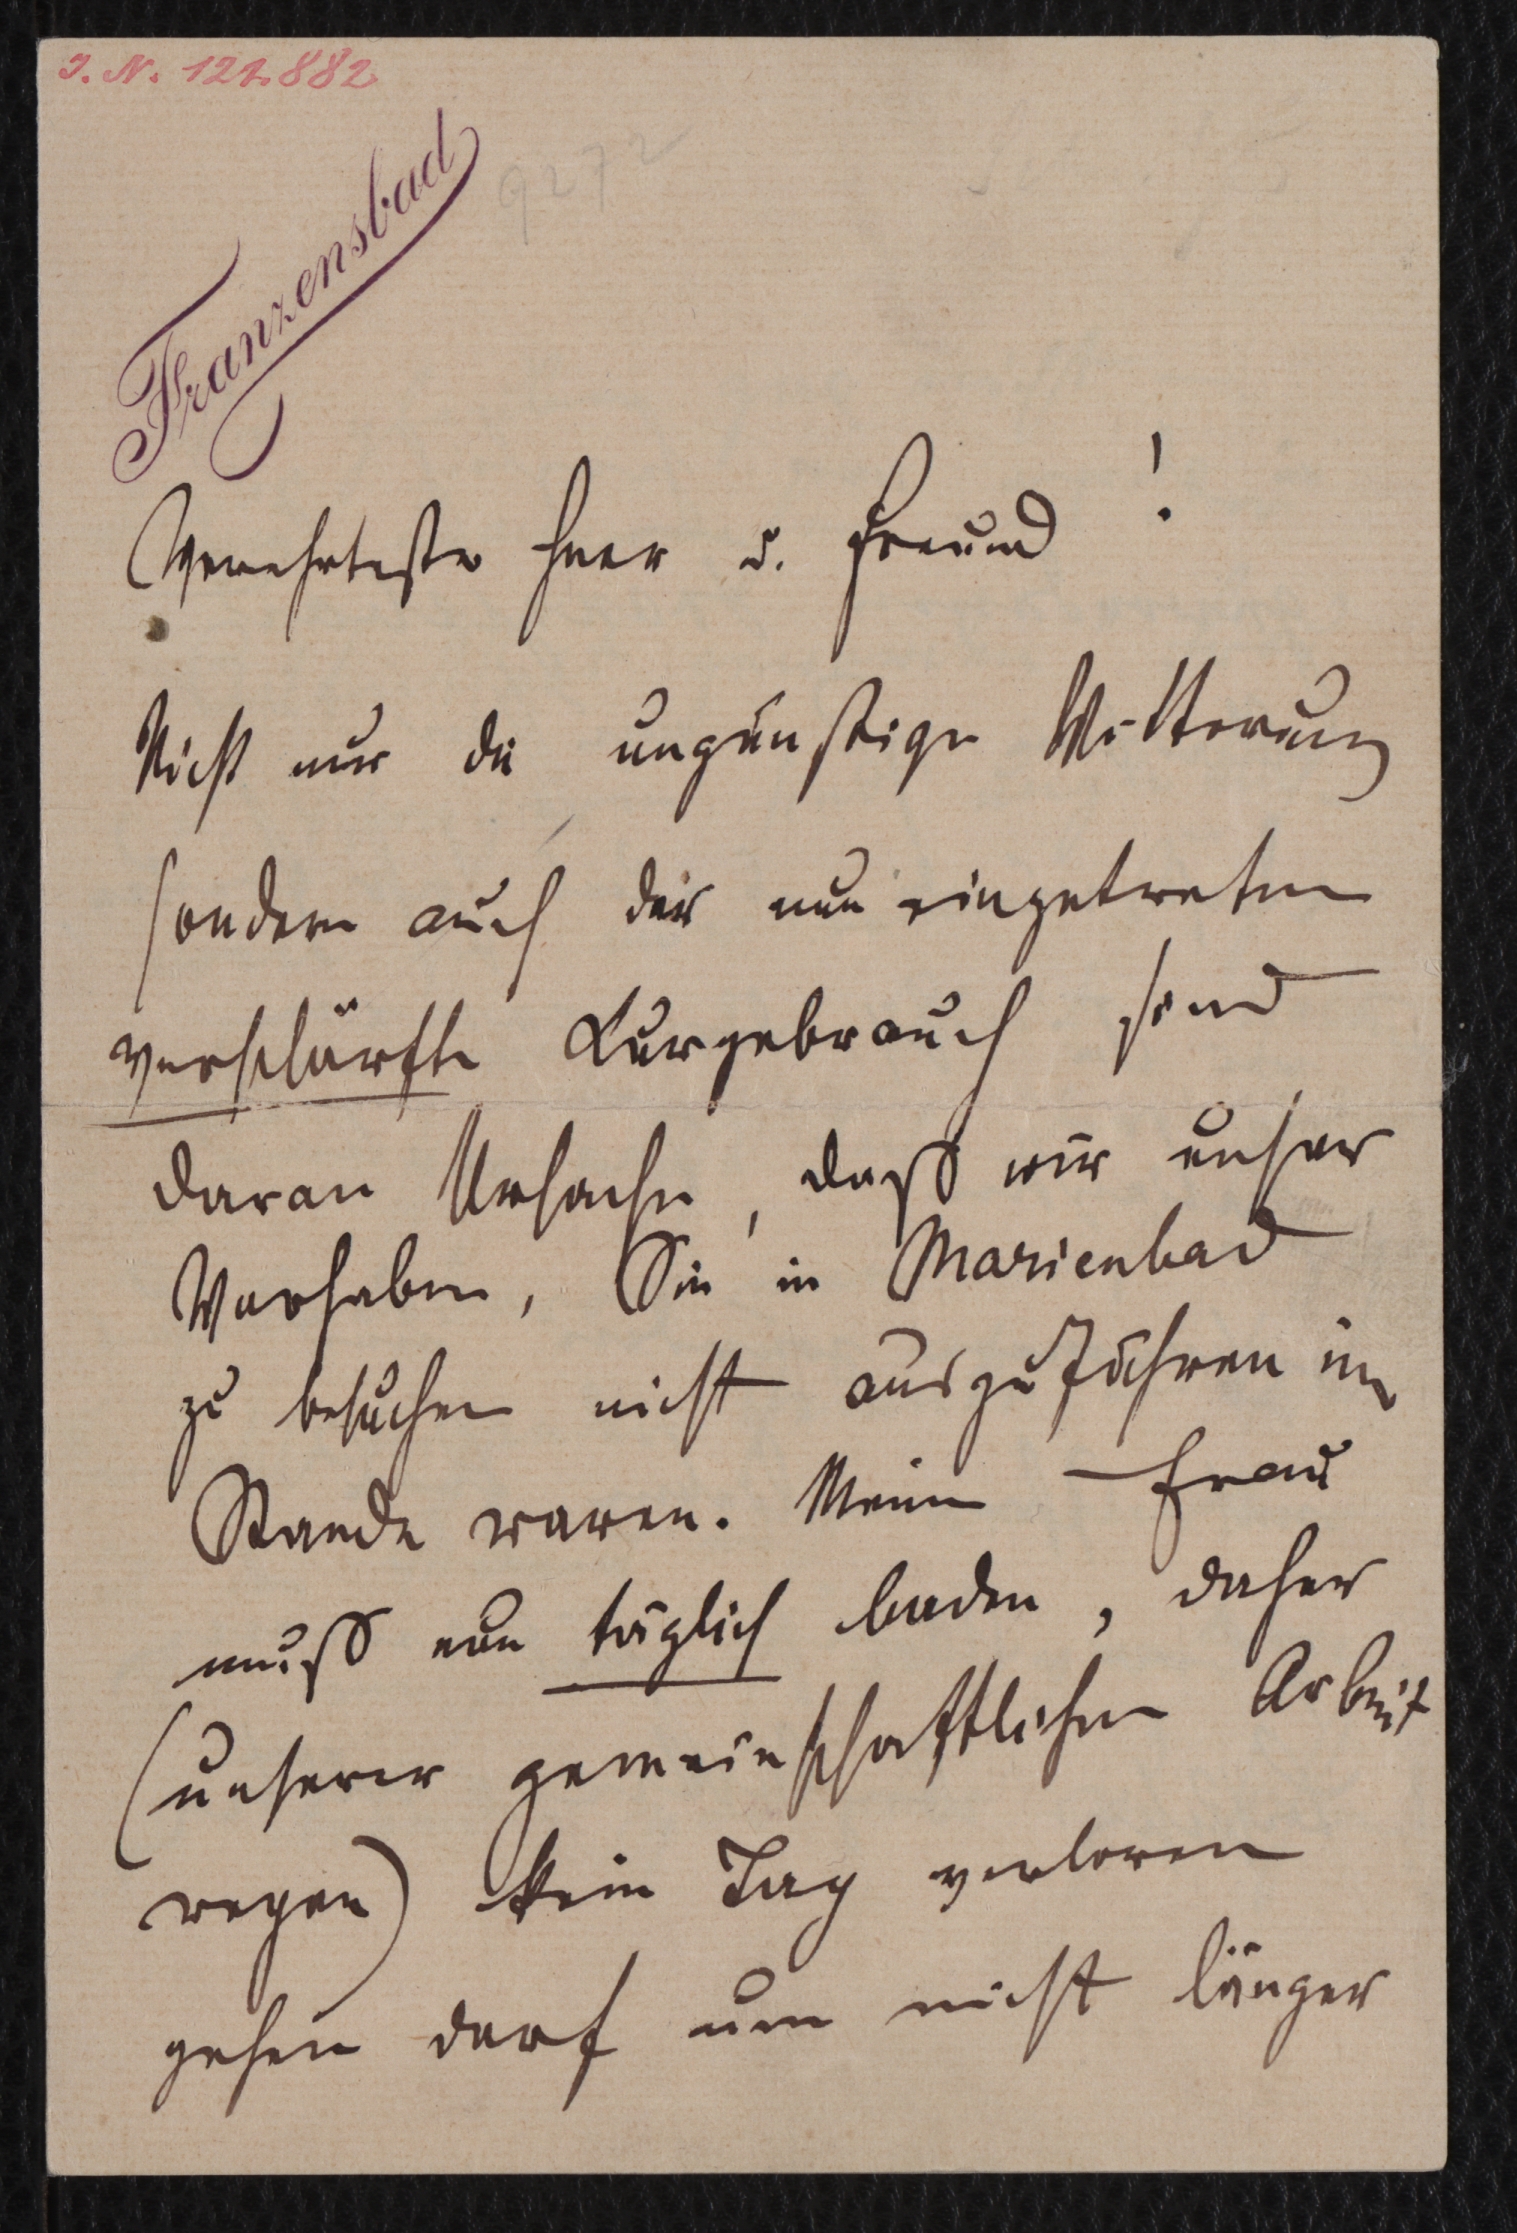 I. N. 122.882
Franzensbad
9272
Verehrtester Herr u. Freund!
Nicht nur die ungünstige Witterung
sondern auch der nun eingetretene
verschärfte Kurgebrauch sind
daran Ursache, daß wir unser
Vorhaben, Sie in Marienbad
zu besuchen nicht auszuführen im
Stande waren. Meine Frau
muß nun täglich baden, daher
(unserer gemeinschaftlichen Arbeit
wegen) kein Tag verloren
gehen darf um nicht länger